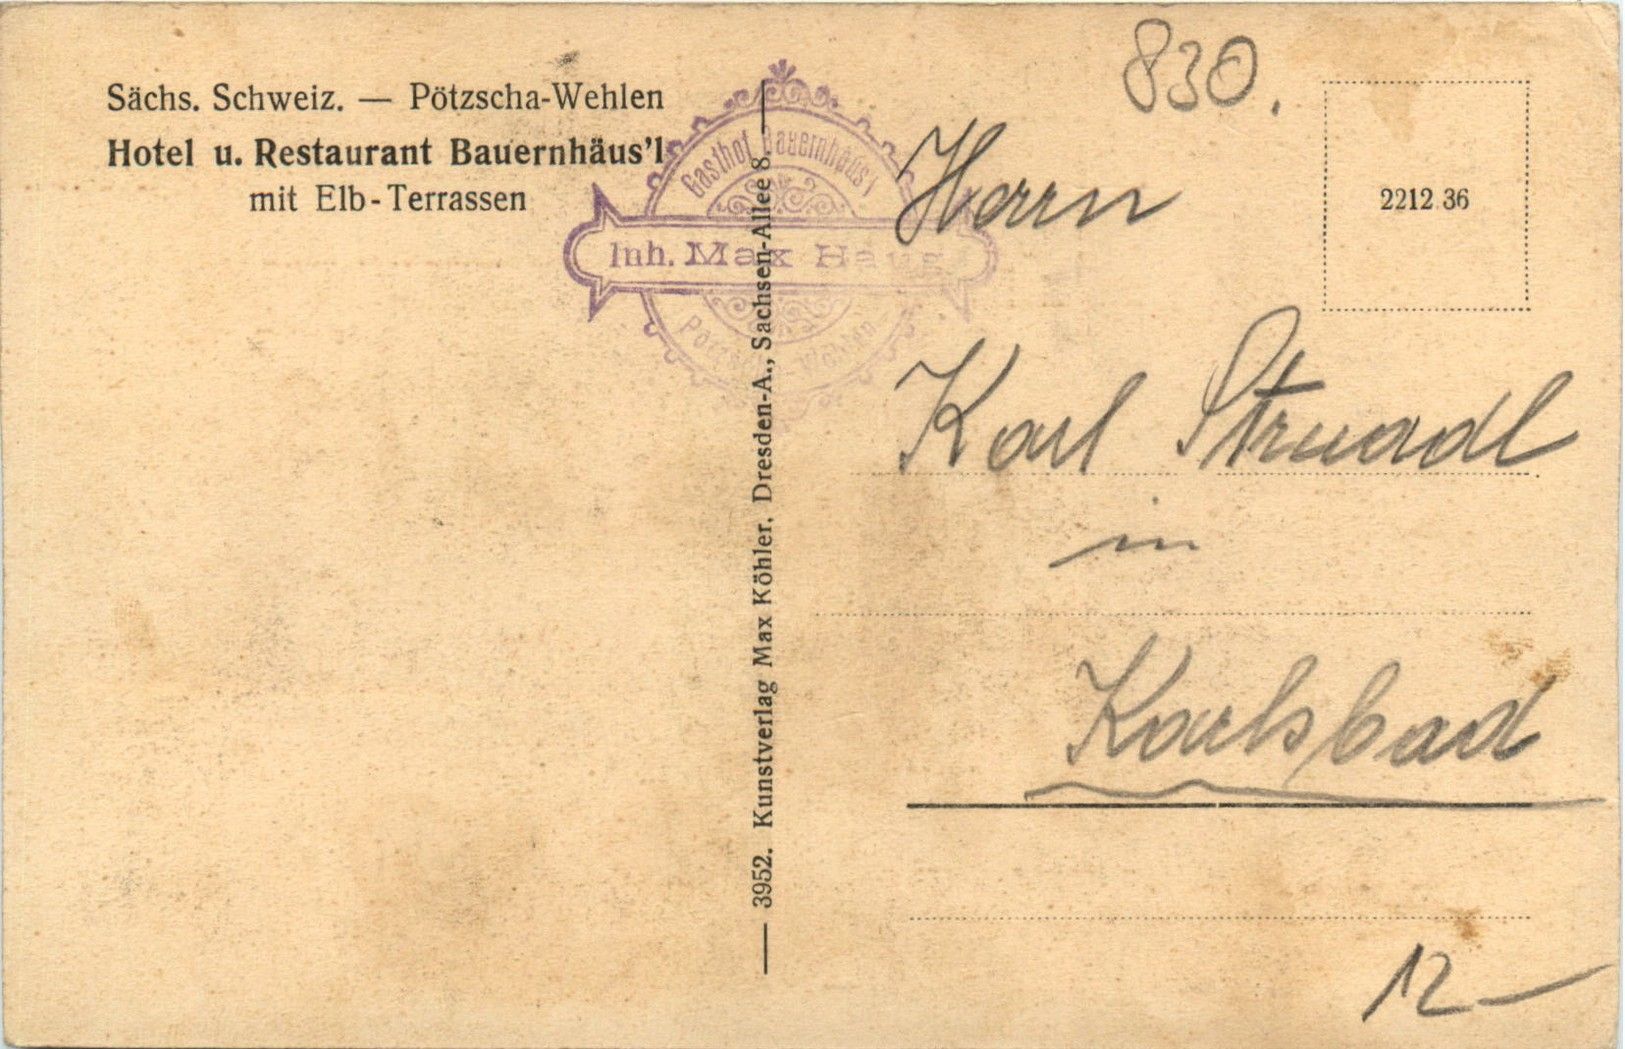 Sächs. Schweiz. — Pötzscha-Wehlen
Hotel u. Restaurant Bauernhäus'l
mit Elb-Terrassen
Gasthof Bauernhäus'l
Inh. Max Haug
Pötzscha - Wehlen
3952. Kunstverlag Max Köhler, Dresden-A., Sachsen-Allee 8.
830.
2212 36
Herrn
Karl Strnadl
in
Karlsbad
12—